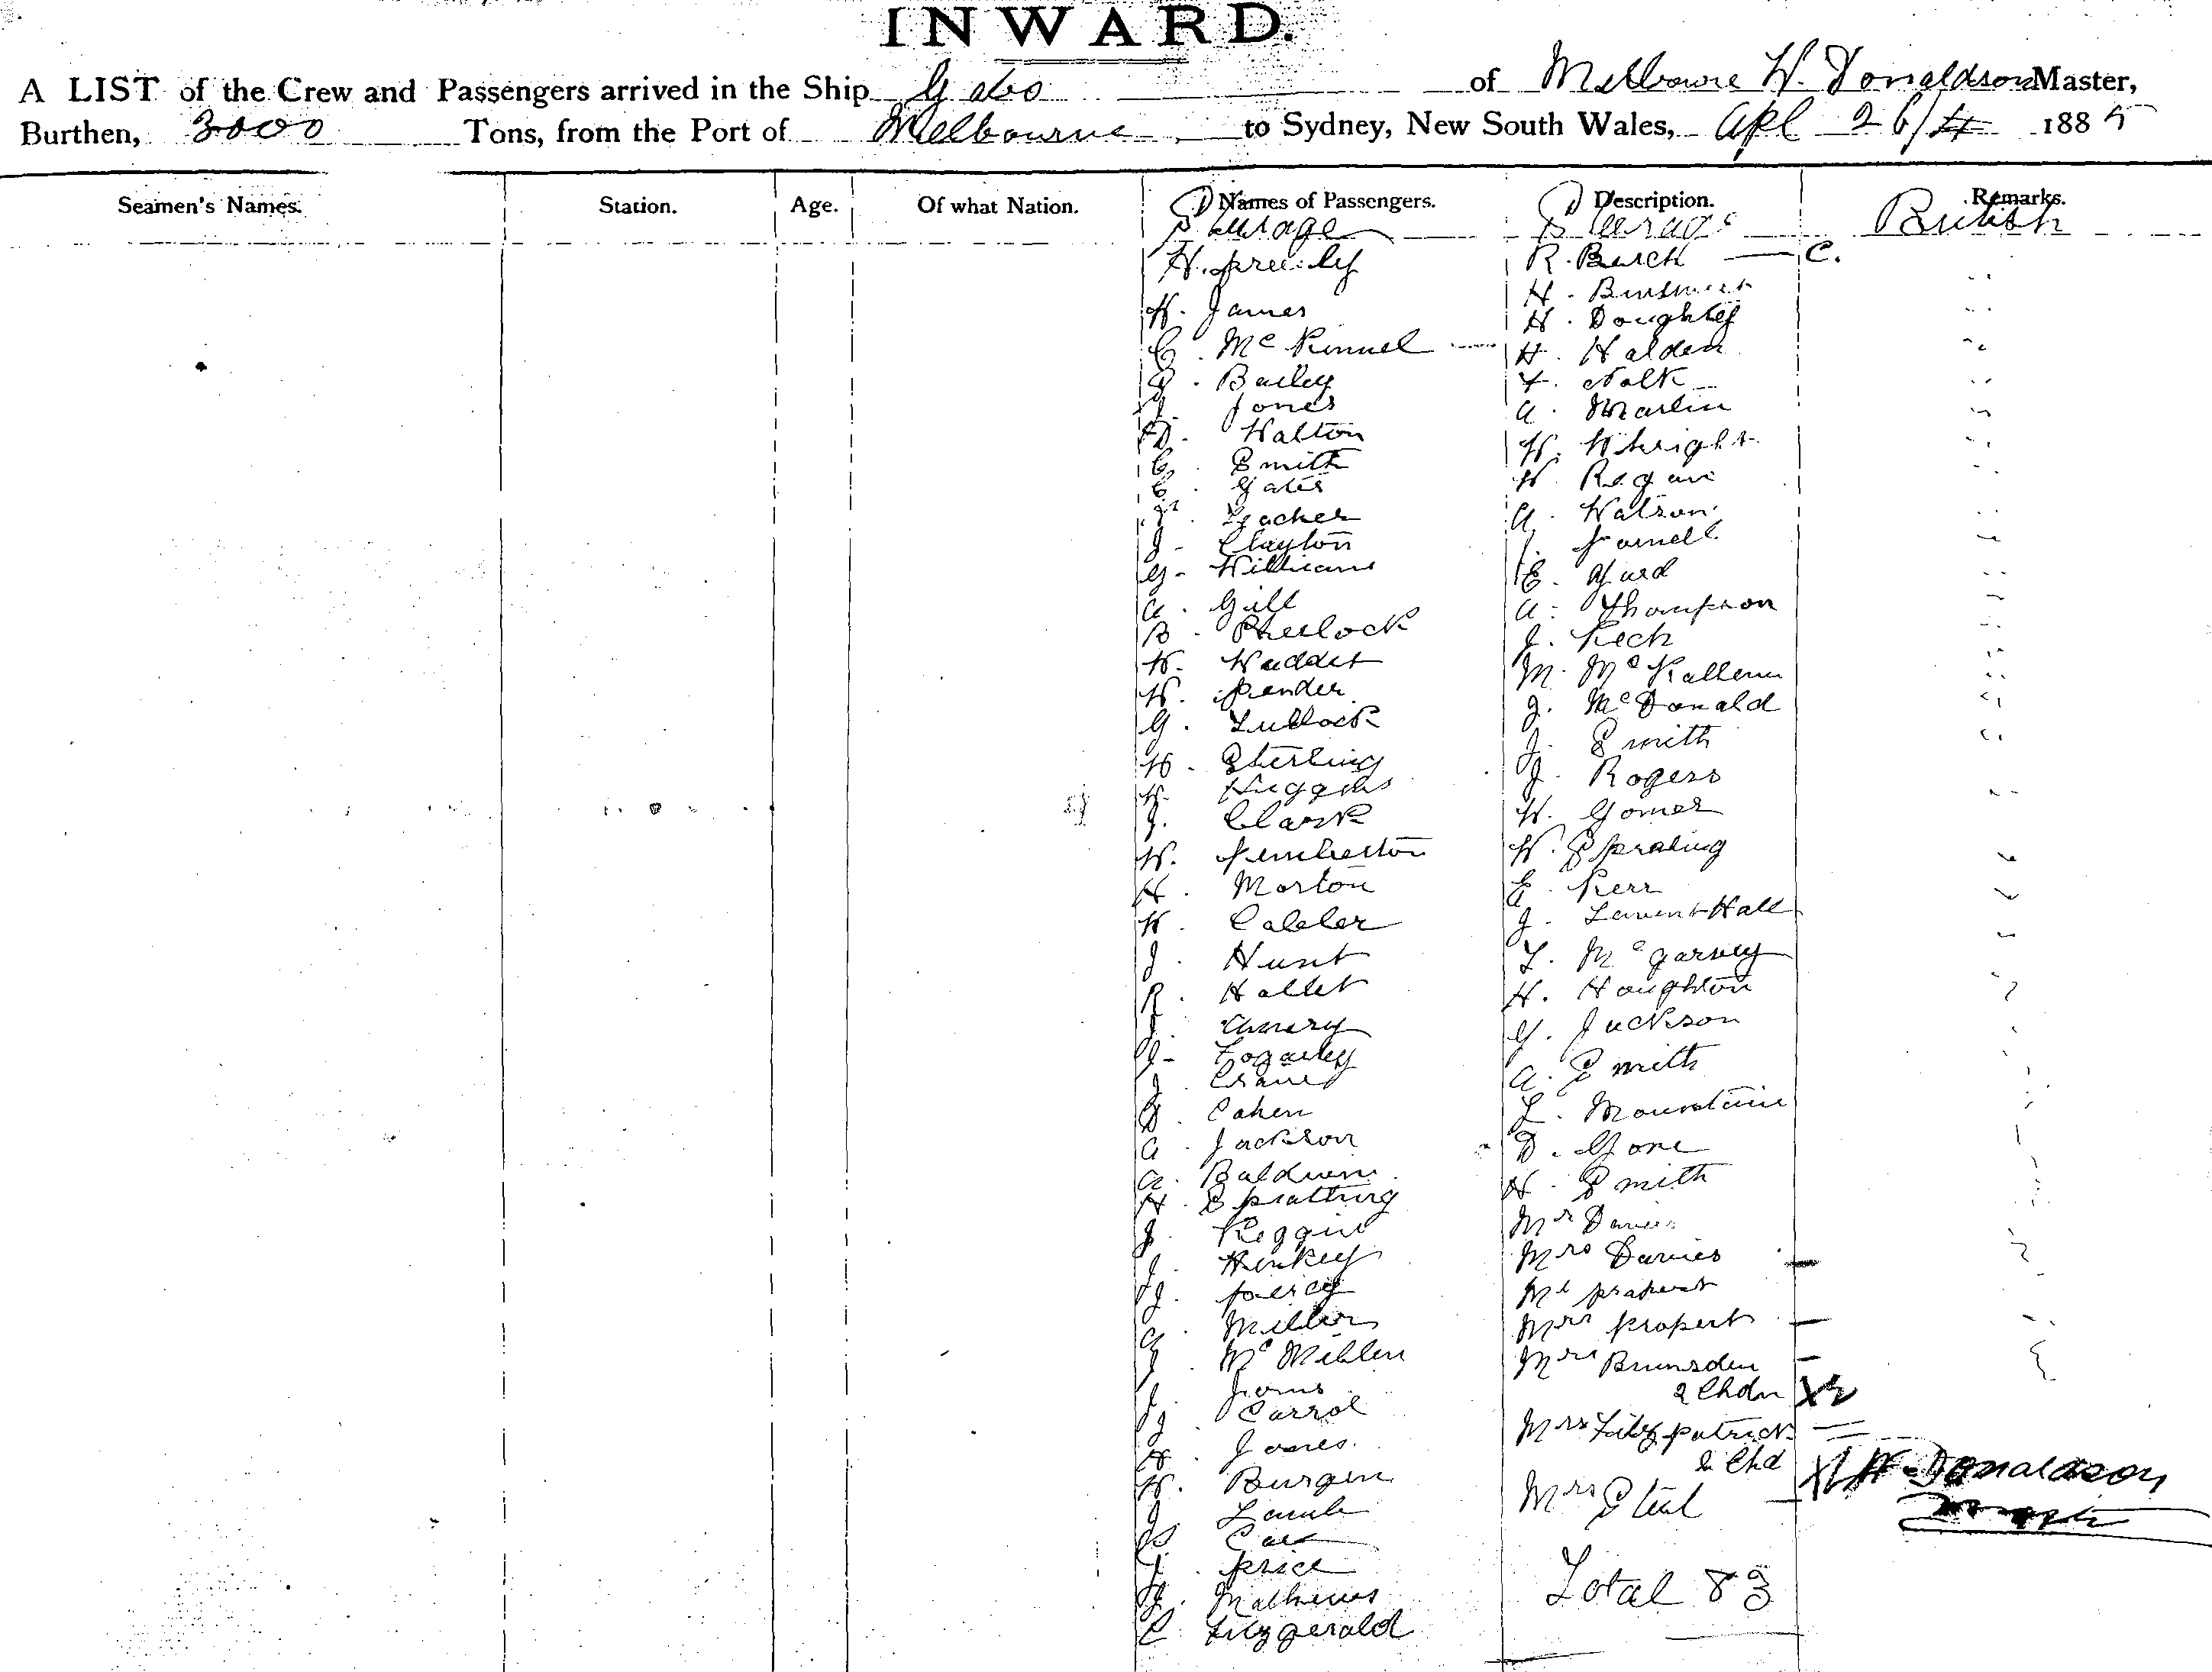 INWARD.
A LIST of the Crew and Passengers arrived in the Ship Gabo of Melbourne W. Donaldson Master,
Burthen, 3000 Tons, from the Port of Melbourne to Sydney, New South Wales, Apl 26/4 1885
Seamen's Names. Station. Age. Of what Nation. Names of Passengers. Description. Remarks.
Steerage Steerage British
H. R. Burch C.
H. James H.
C. McKinnel H. Doughty
Bailey H. Halden
J. Jones
D. Walton A. Martin
C. Smith W. Wright
C. Yates W. Regan
J. A. Watson
J. Clayton
G. Williams E. Ward
A. Gill A. Thompson
B. J. Keck
W. M. McKallum
W. Pender J. McDonald
G. Tullock J. Smith
W. Sterling J. Rogers
W. Huggins W. Gomer
J. Clark W. Sprating
W. Pemberton E. Kerr
H. Morton J. Hall
W. Calder T. McGarvey
J. Hunt H. Houghton
R. Hallet G. Jackson
J. A. Smith
J. Fogarty L. Mountain
J. D. Gore
D. Cahen H. Smith
A. Jackson Mr Davies
A. Baldwin Mrs Davies
H. Spratling Mr Propert
J. Mrs Propert
J. Mrs Brunsden
J. 2 Chdn
G. Miller Mrs Fitzpatrick
J. McMillen 2 Chd
J. Mrs Steel
J. Carrol
H. Jones
W. Burgin
J. Lamb
J. Price
J. Mathews
C. Fitzgerald
Total 83
W. Donaldson
Master